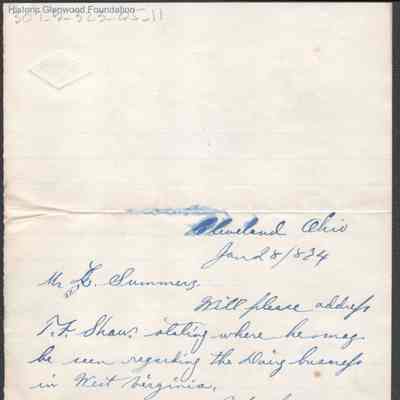 Historic Glenwood Foundation
Cleveland Ohio
Jan 28/84
Mr Summers
Will please address
T. F. Shaw, stating where he may
be seen regarding the Dairy business
in West Virginia,